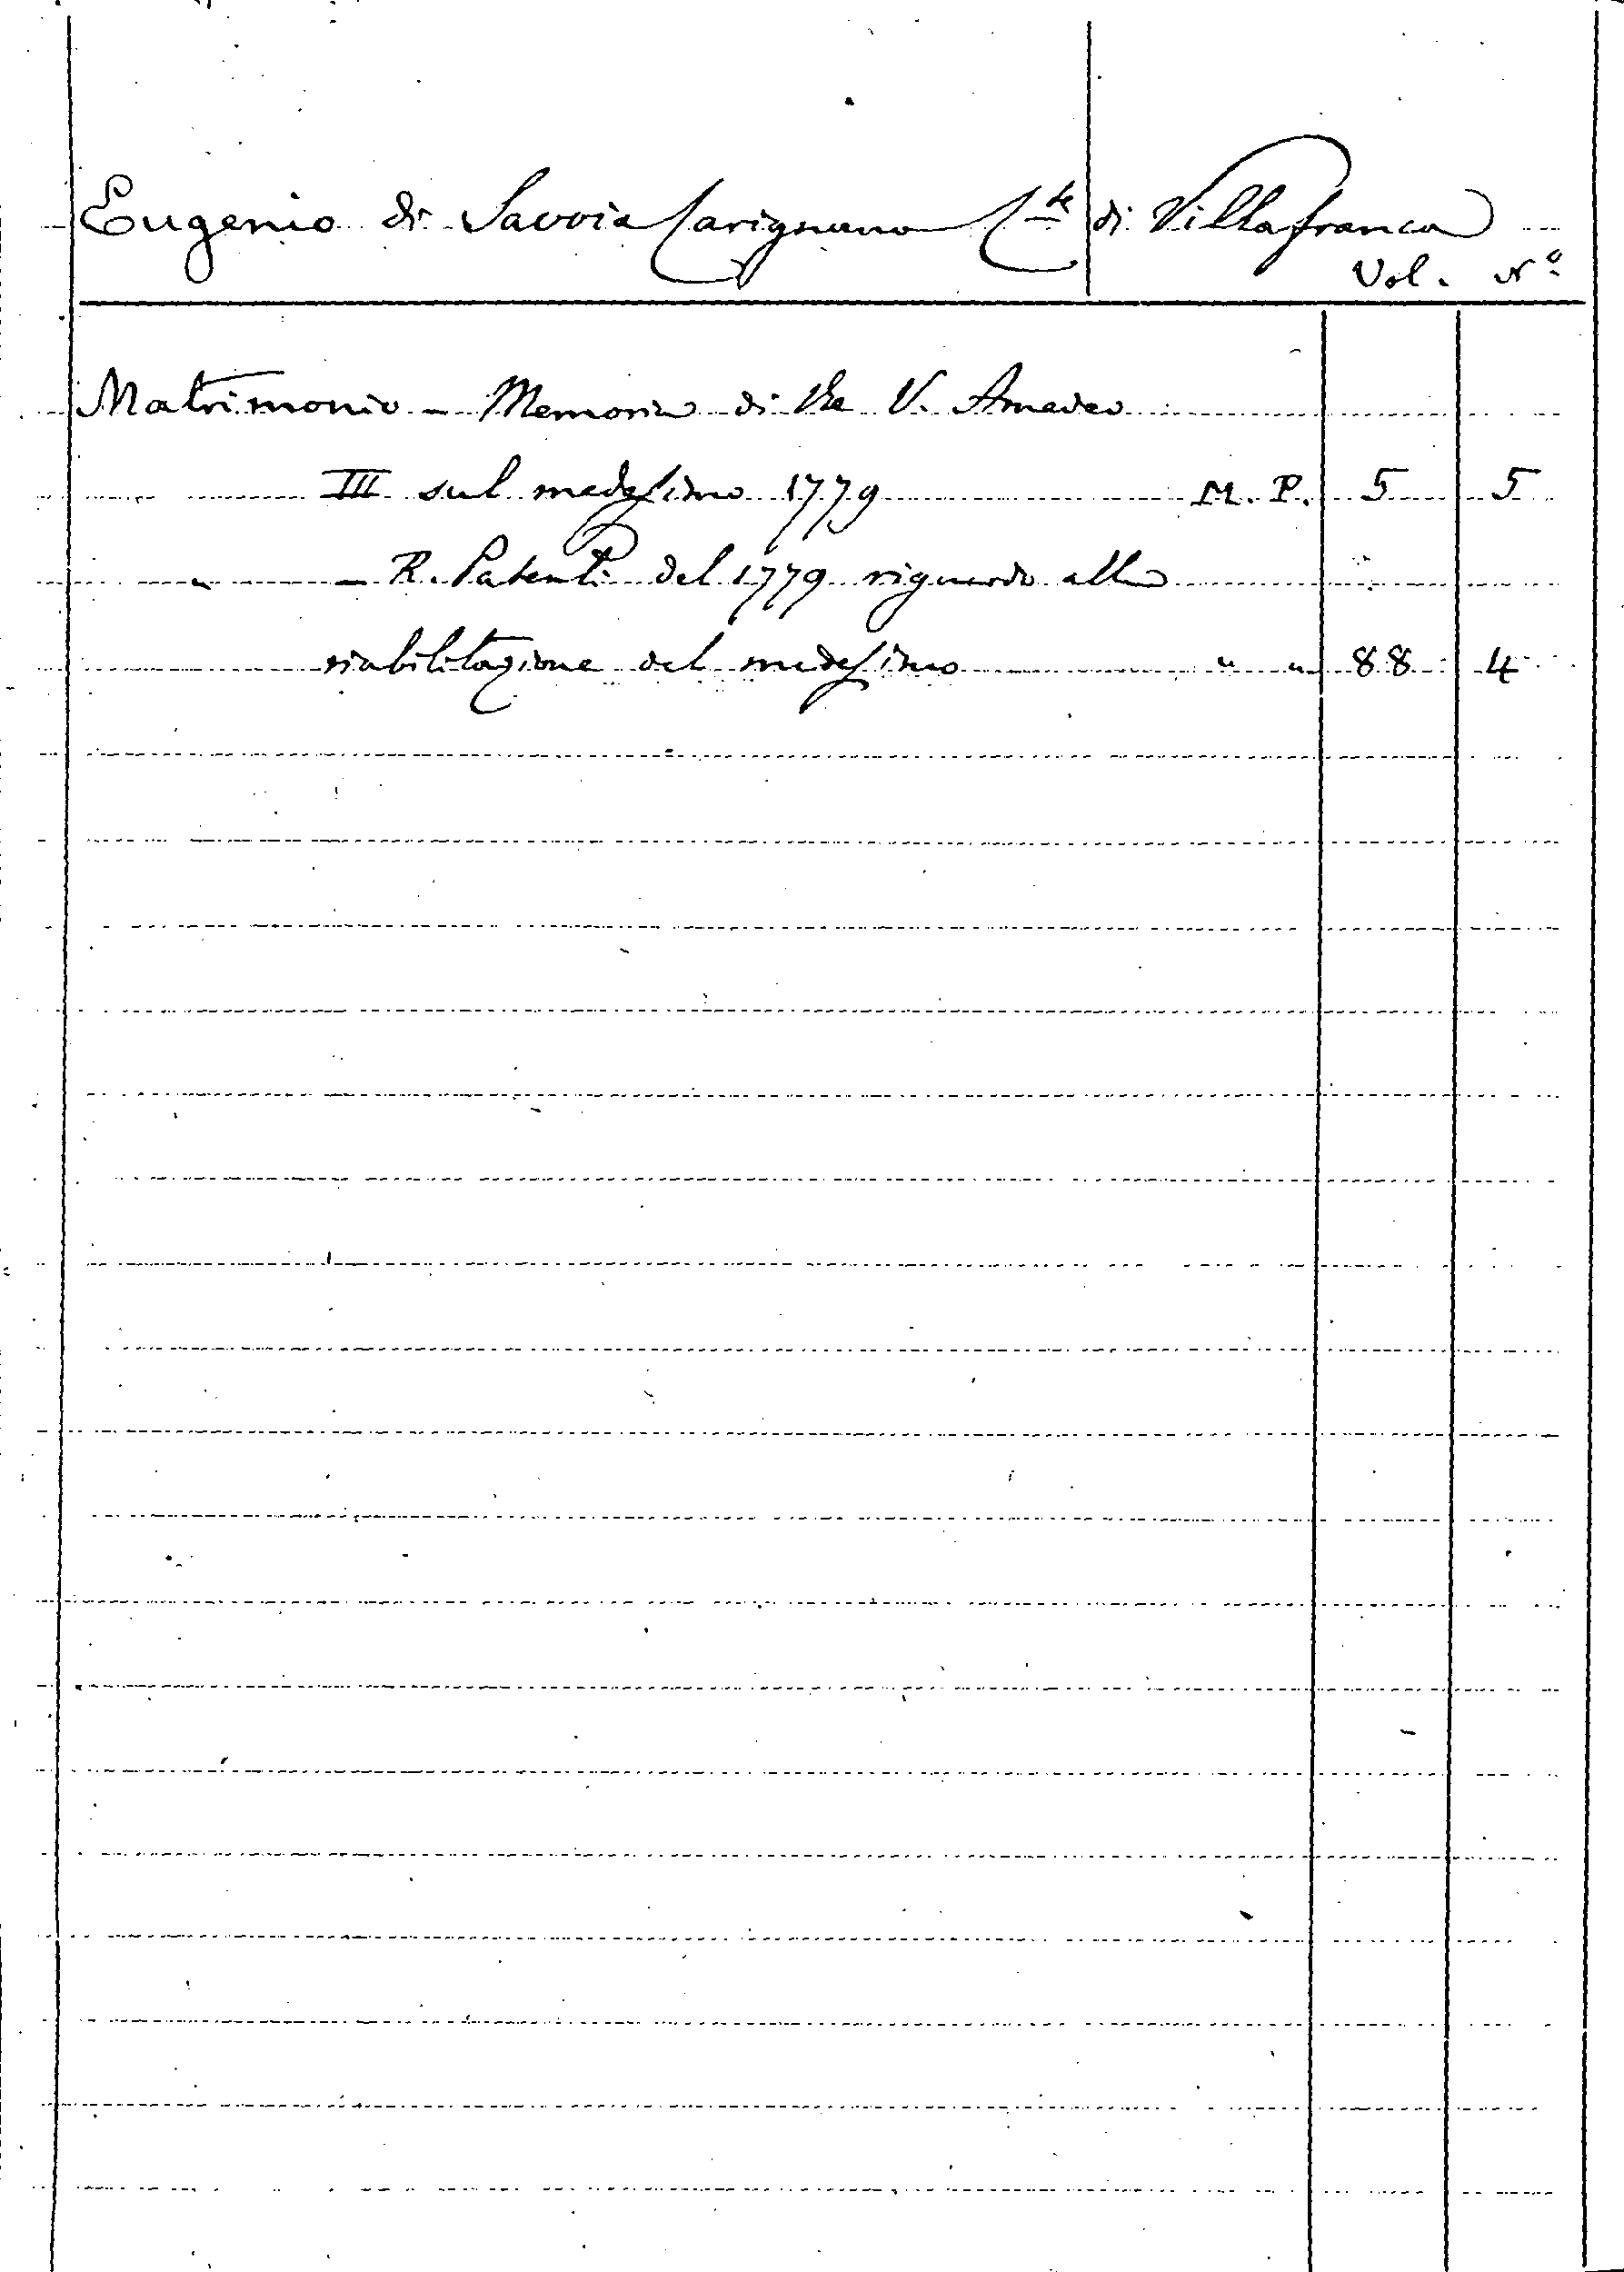 Eugenio di Savoia Carignano C.te di Villafranca
Vol. N°
Matrimonio - Memoria di Re V. Amedeo
III sul medesimo 1779 M. P. 5 5
" - R. Patenti del 1779 riguardo alla
riabilitazione del medesimo " " 88 4